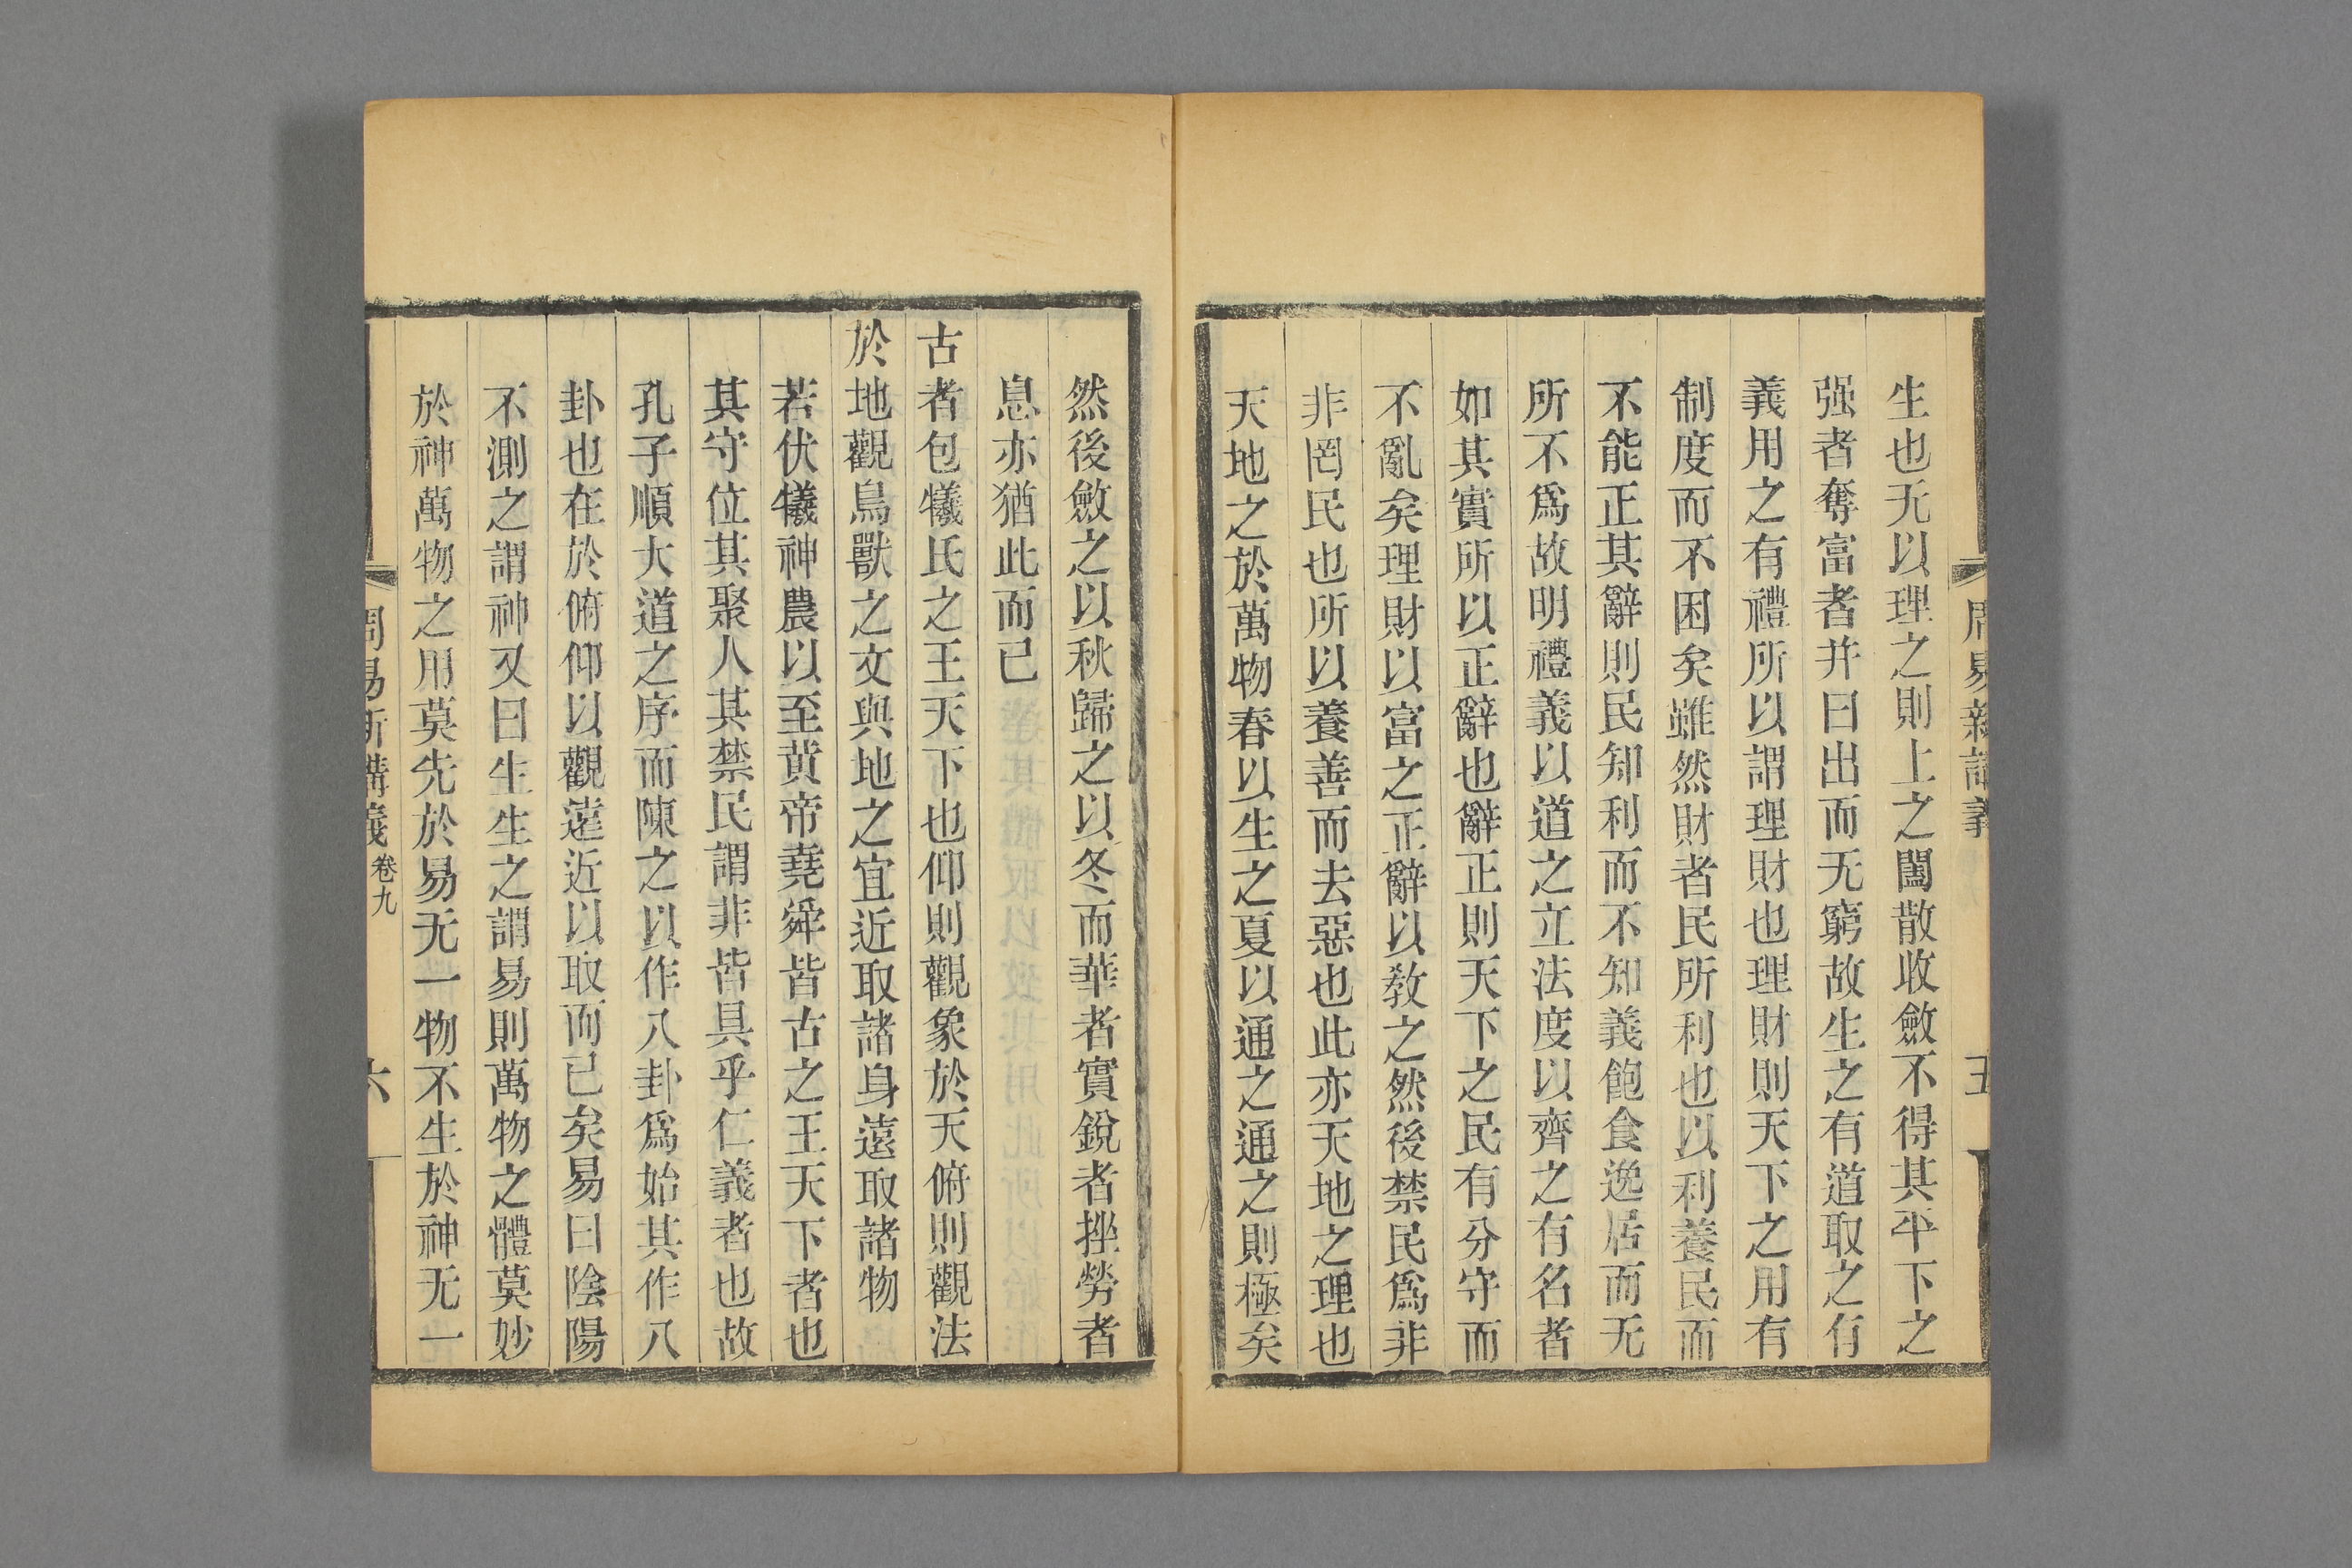 周易新講義
五
生也无以理之則上之闔散收斂不得其平下之
强者奪富者并曰出而无窮故生之有道取之有
義用之有禮所以謂理財也理財則天下之用有
制度而不困矣雖然財者民所利也以利養民而
不能正其辭則民知利而不知義飽食逸居而无
所不爲故明禮義以道之立法度以齊之有名者
如其實所以正辭也辭正則天下之民有分守而
不亂矣理財以富之正辭以敎之然後禁民爲非
非罔民也所以養善而去惡也此亦天地之理也
天地之於萬物春以生之夏以通之通之則極矣
然後斂之以秋歸之以冬而華者實銳者挫勞者
息亦猶此而已
古者包犧氏之王天下也仰則觀象於天俯則觀法
於地觀鳥獸之文與地之宜近取諸身遠取諸物
若伏犧神農以至黃帝堯舜皆古之王天下者也
其守位其聚人其禁民謂非皆具乎仁義者也故
孔子順大道之序而陳之以作八卦爲始其作八
卦也在於俯仰以觀遠近以取而已矣易曰陰陽
不測之謂神又曰生生之謂易則萬物之體莫妙
於神萬物之用莫先於易无一物不生於神无一
周易新講義 卷九
六